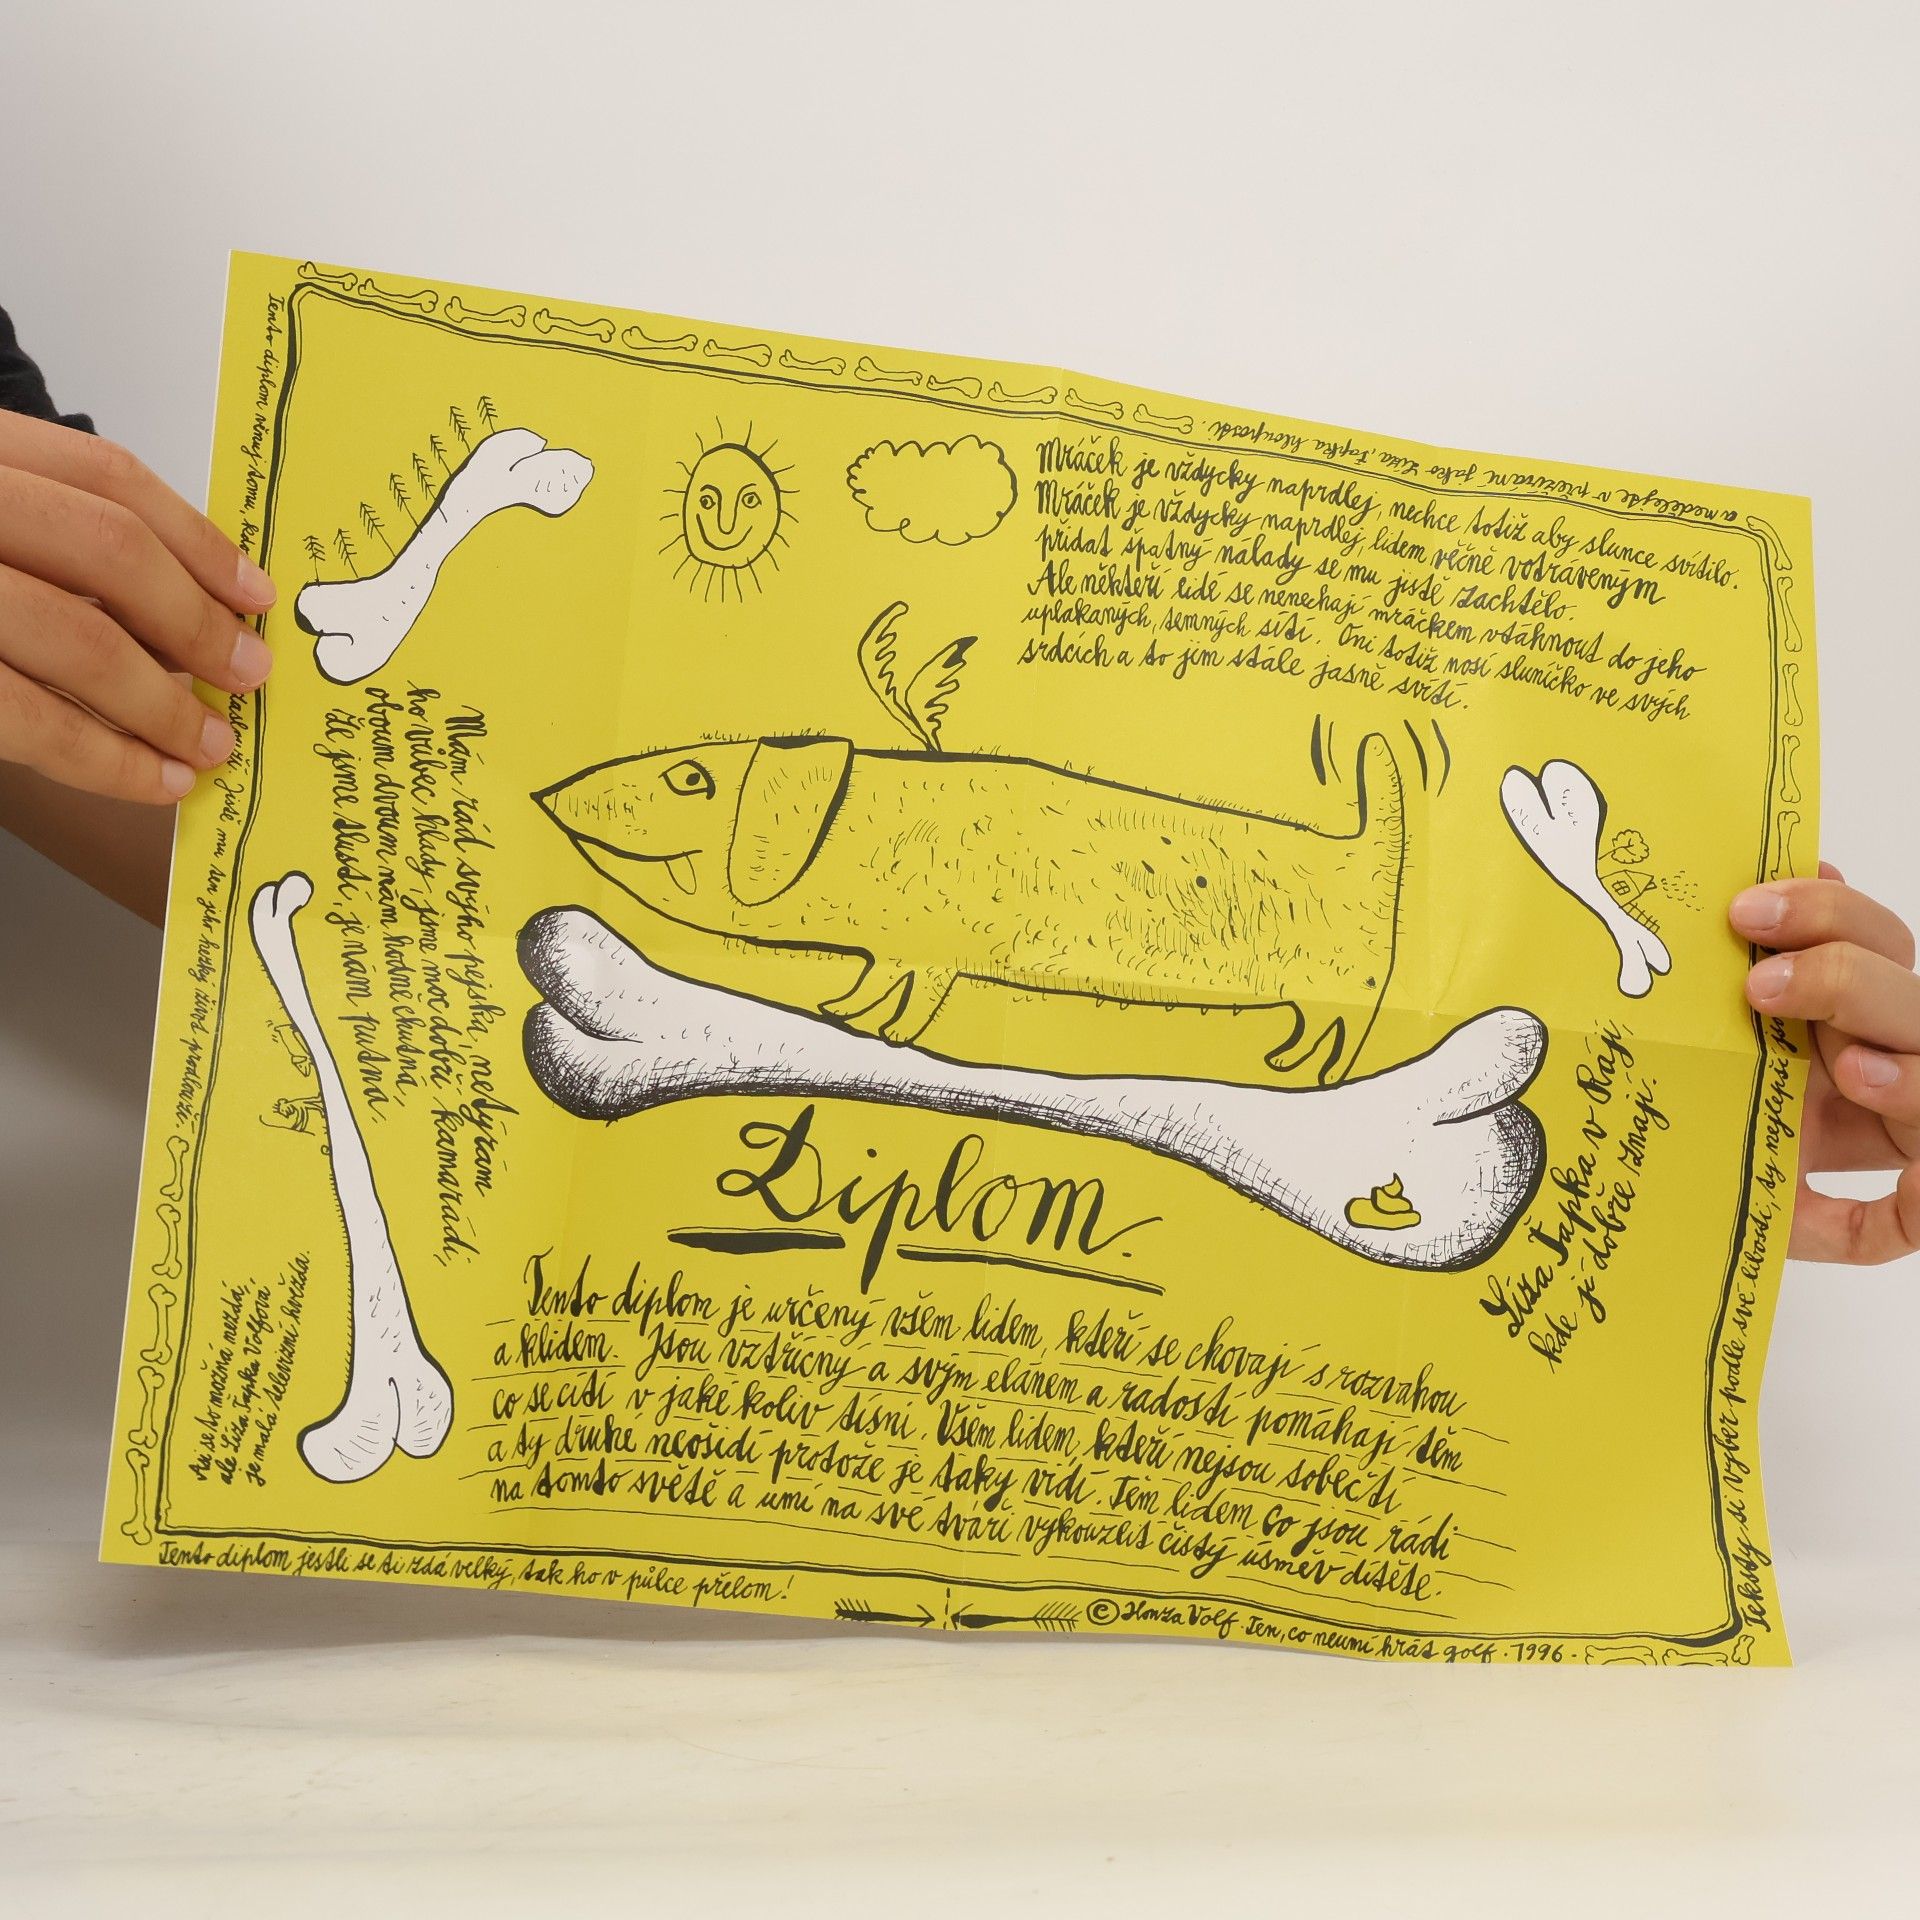 a nedělejte v přežírání jako Líza, Ťapka hlouposti.
Mráček je vždycky naprdlej, nechce totiž aby slunce svítilo.
Mráček je vždycky naprdlej, lidem věčně votráveným
přidat špatný nálady se mu jistě zachtělo.
Ale někteří lidé se nenechají mráčkem vtáhnout do jeho
uplakaných, temných sítí. Oni totiž nosí sluníčko ve svých
srdcích a to jim stále jasně svítí.
Tento diplom věnuj tomu, kdo zaslouží. Jistě mu ten jeho hezký život prodlouží.
Mám rád svýho pejska, netýrám
ho vůbec hlady, jsme moc dobří kamarádi,
oboum dvoum nám hodně chutná,
že jsme tlustí, je nám putna.
Líza Ťapka v Ráji,
kde jí dobře znají.
Diplom.
Tento diplom je určený všem lidem, kteří se chovají s rozvahou
a klidem. Jsou vztřícný a svým elánem a radostí pomáhají těm
co se cítí v jaké koliv tísni. Všem lidem, kteří nejsou sobečtí
a ty druhé neošidí protože je taky vidí. Těm lidem co jsou rádi
na tomto světě a umí na své tváři vykouzlit čistý úsměv dítěte.
Asi se to možná nezdá,
ale Líza Ťapka Volfová,
je malá televizní hvězda.
Teksty si vyber podle své libosti, ty nejlepší
Tento diplom jestli se ti zdá velký, tak ho v půlce přelom!
© Honza Volf. Ten, co neumí hrát golf. 1996.